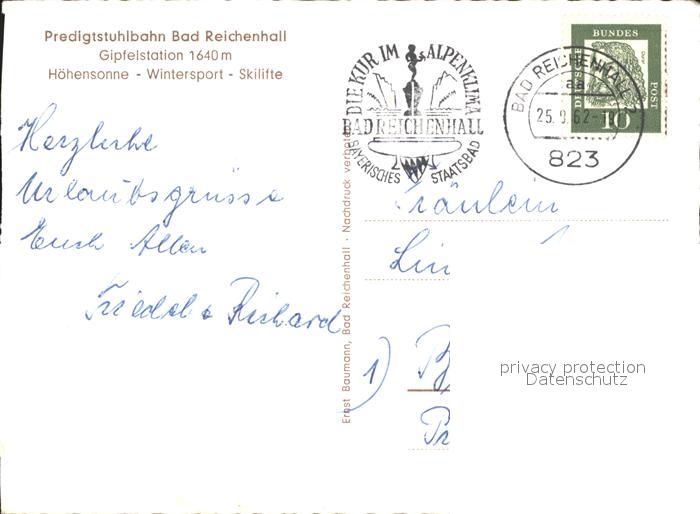 Predigtstuhlbahn Bad Reichenhall
Gipfelstation 1640 m
Höhensonne - Wintersport - Skilifte
Herzliche
Urlaubsgrüsse
Euch Allen
Friedel & Richard
Ernst Baumann, Bad Reichenhall · Nachdruck verboten
DIE KUR IM ALPENKLIMA
BAD REICHENHALL
BAYERISCHES STAATSBAD
BAD REICHENHALL
aa
25.9.62-
823
DEUTSCHE BUNDESPOST
10
Fräulein
Lin
1) B
Pr
privacy protection
Datenschutz